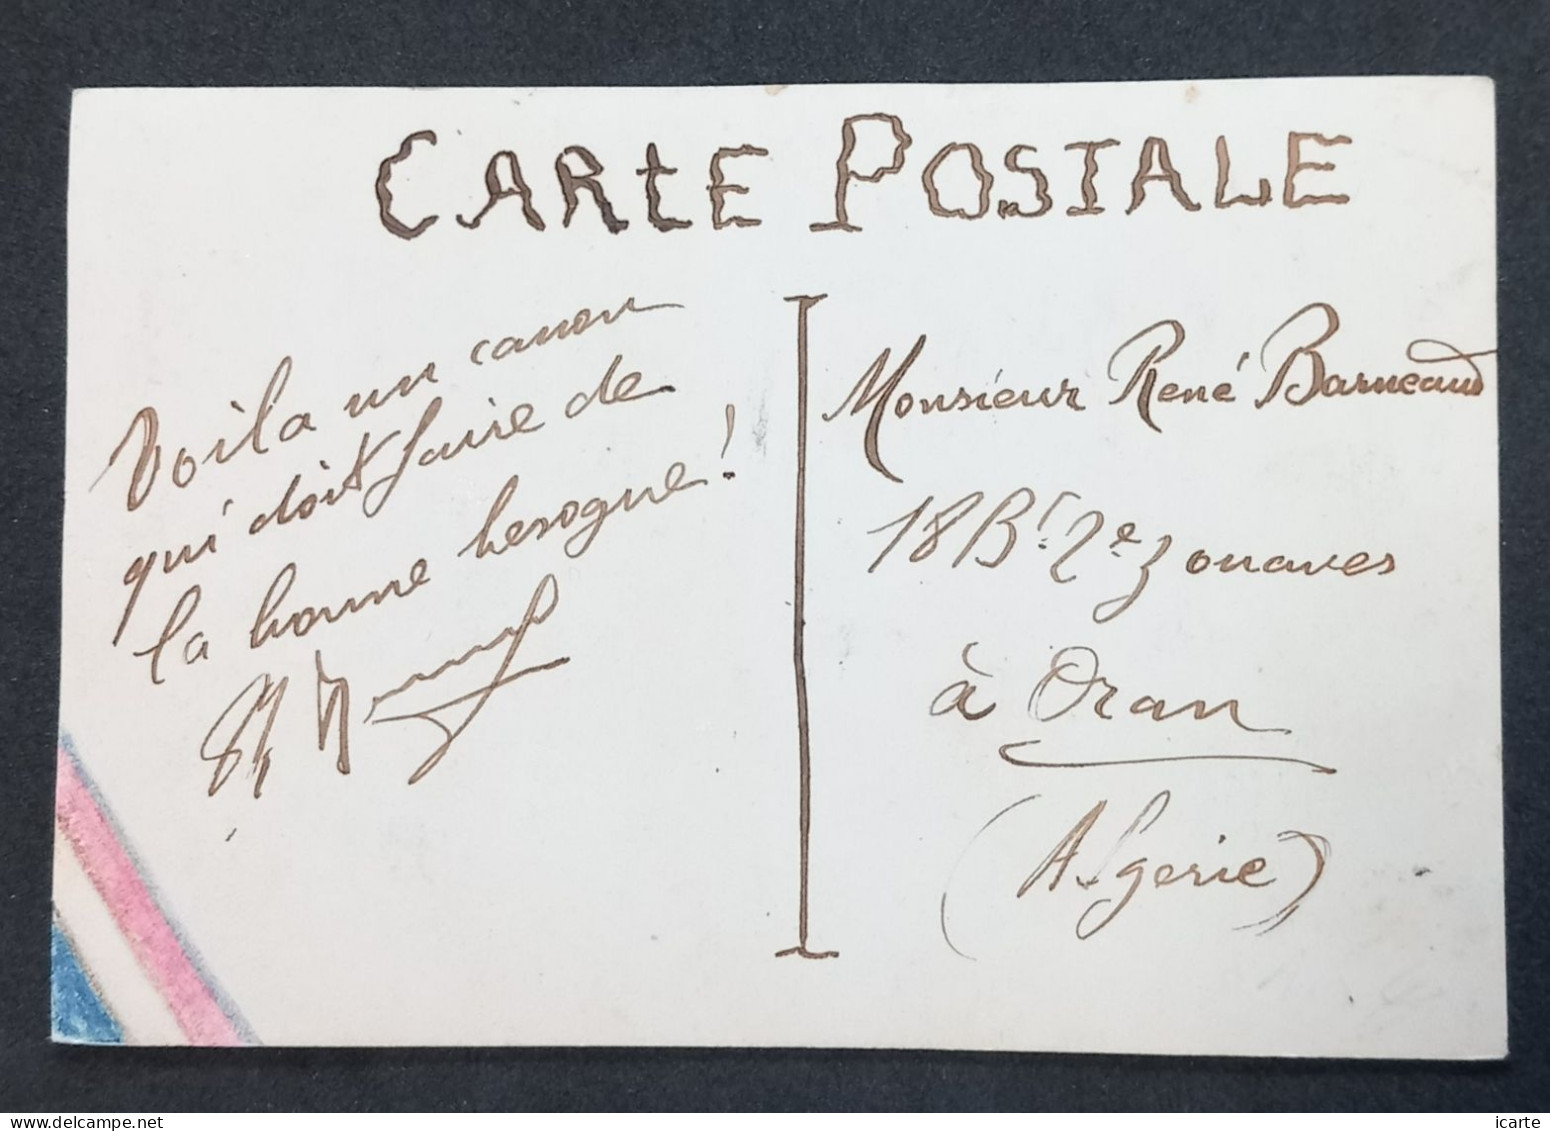 CARTE POSTALE
Voila un canon
qui doit faire de
la bonne besogne!
Monsieur René Barneaud
18 Bt 2e zouaves
à Oran
(Algerie)
www.delcampe.net
icarte